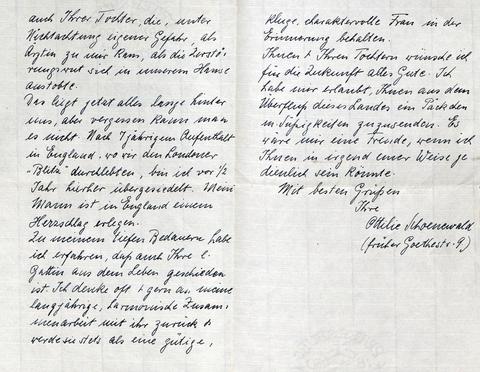 auch Ihrer Tochter, die, unter
Nichtachtung eigener Gefahr, als
Ärztin zu mir kam, als die Zerstö-
rungswut sich in unserem Hause
austobte.
Das liegt jetzt alles lange hinter
uns, aber vergessen kann man
es nicht. Nach 7jährigem Aufenthalt
in England, wo wir den Londoner
"Blitz" durchlebten, bin ich vor 1/2
Jahr hierher übergesiedelt. Mein
Mann ist in England einem
Herzschlag erlegen.
Zu meinem tiefen Bedauern habe
ich erfahren, daß auch Ihre l.
Gattin aus dem Leben geschieden
ist. Ich denke oft + gern an meine
langjährige, harmonische Zusam-
menarbeit mit ihr zurück +
werde sie stets als eine gütige,
kluge, charaktervolle Frau in der
Erinnerung behalten.
Ihnen + Ihren Töchtern wünsche ich
für die Zukunft alles Gute. Ich
habe mir erlaubt, Ihnen aus dem
Überfluß dieses Landes ein Päckchen
m. Süßigkeiten zuzuwenden. Es
wäre mir eine Freude, wenn ich
Ihnen in irgend einer Weise ge
dienlich sein könnte.
Mit besten Grüßen
Ihre
Ottilie Schoenewald
(früher Goethestr. 9)